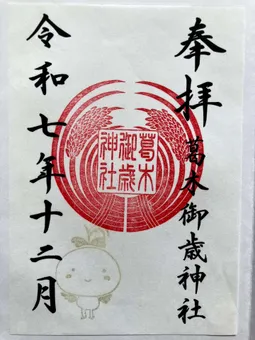 奉拝
葛木御歳神社
葛木
御歳
神社
令和七年十二月